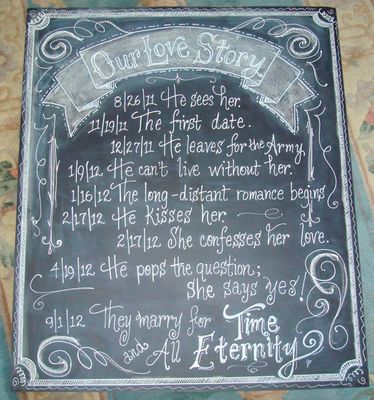 Our Love Story
8/26/11 He sees her.
11/19/11 The first date.
12/27/11 He leaves for the Army.
1/9/12 He can't live without her.
1/16/12 The long-distant romance begins
2/17/12 He kisses her.
2/17/12 She confesses her love.
4/19/12 He pops the question;
She says yes!
9/1/12 They marry for Time
and All Eternity